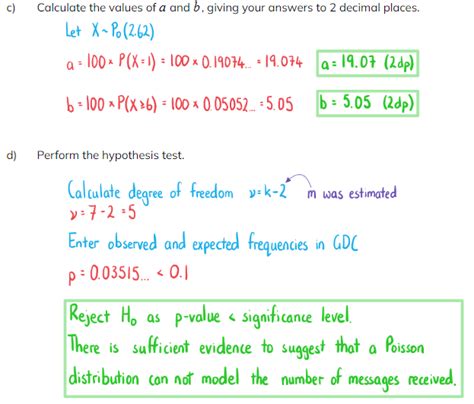 c) Calculate the values of a and b, giving your answers to 2 decimal places.
Let X ~ Po(2.62)
a = 100 × P(X=1) = 100 × 0.19074... = 19.074 a = 19.07 (2dp)
b = 100 × P(X≥6) = 100 × 0.05052... = 5.05 b = 5.05 (2dp)
d) Perform the hypothesis test.
Calculate degree of freedom ν = k - 2 m was estimated
ν = 7 - 2 = 5
Enter observed and expected frequencies in GDC
p = 0.03515... < 0.1
Reject H₀ as p-value < significance level.
There is sufficient evidence to suggest that a Poisson
distribution can not model the number of messages received.